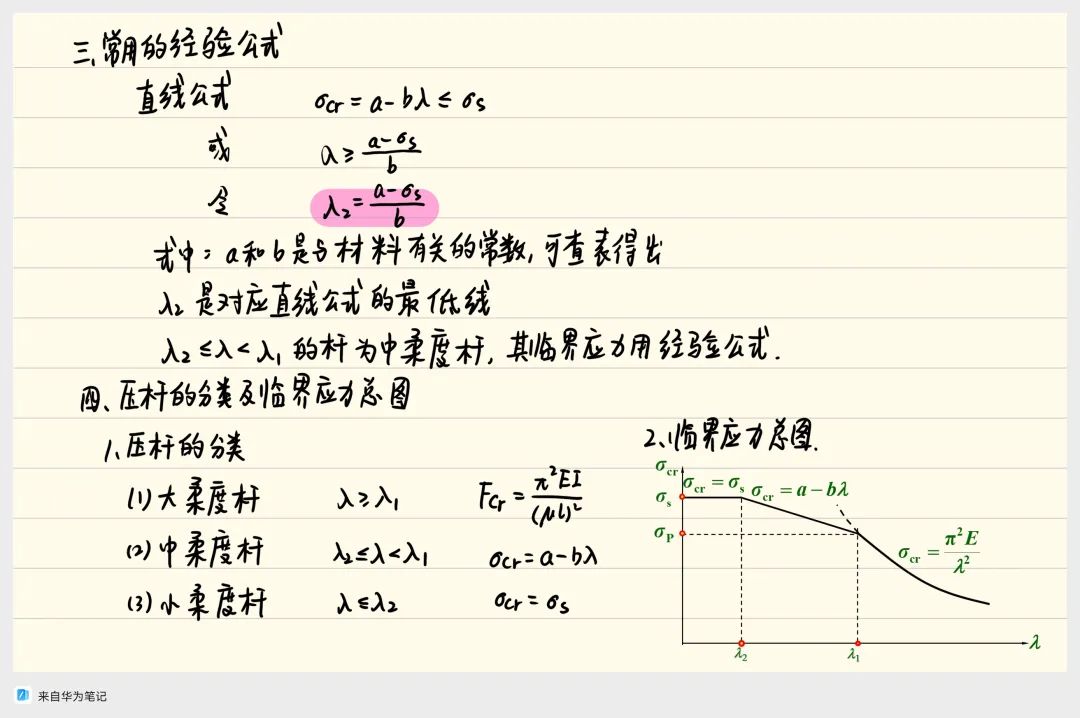 三、常用的经验公式
直线公式 σcr = a - bλ ≤ σs
或 λ ≥ (a - σs)/b
令 λ₂ = (a - σs)/b
式中：a和b是与材料有关的常数，可查表得出
λ₂ 是对应直线公式的最低线
λ₂ ≤ λ < λ₁ 的杆为中柔度杆，其临界应力用经验公式．
四、压杆的分类及临界应力总图
1、压杆的分类
(1) 大柔度杆 λ ≥ λ₁ Fcr = π²EI/(μl)²
(2) 中柔度杆 λ₂ ≤ λ < λ₁ σcr = a - bλ
(3) 小柔度杆 λ ≤ λ₂ σcr = σs
2、临界应力总图．
σcr
σs
σcr = σs
σcr = a - bλ
σP
σcr = π²E/λ²
λ₂
λ₁
λ
来自华为笔记